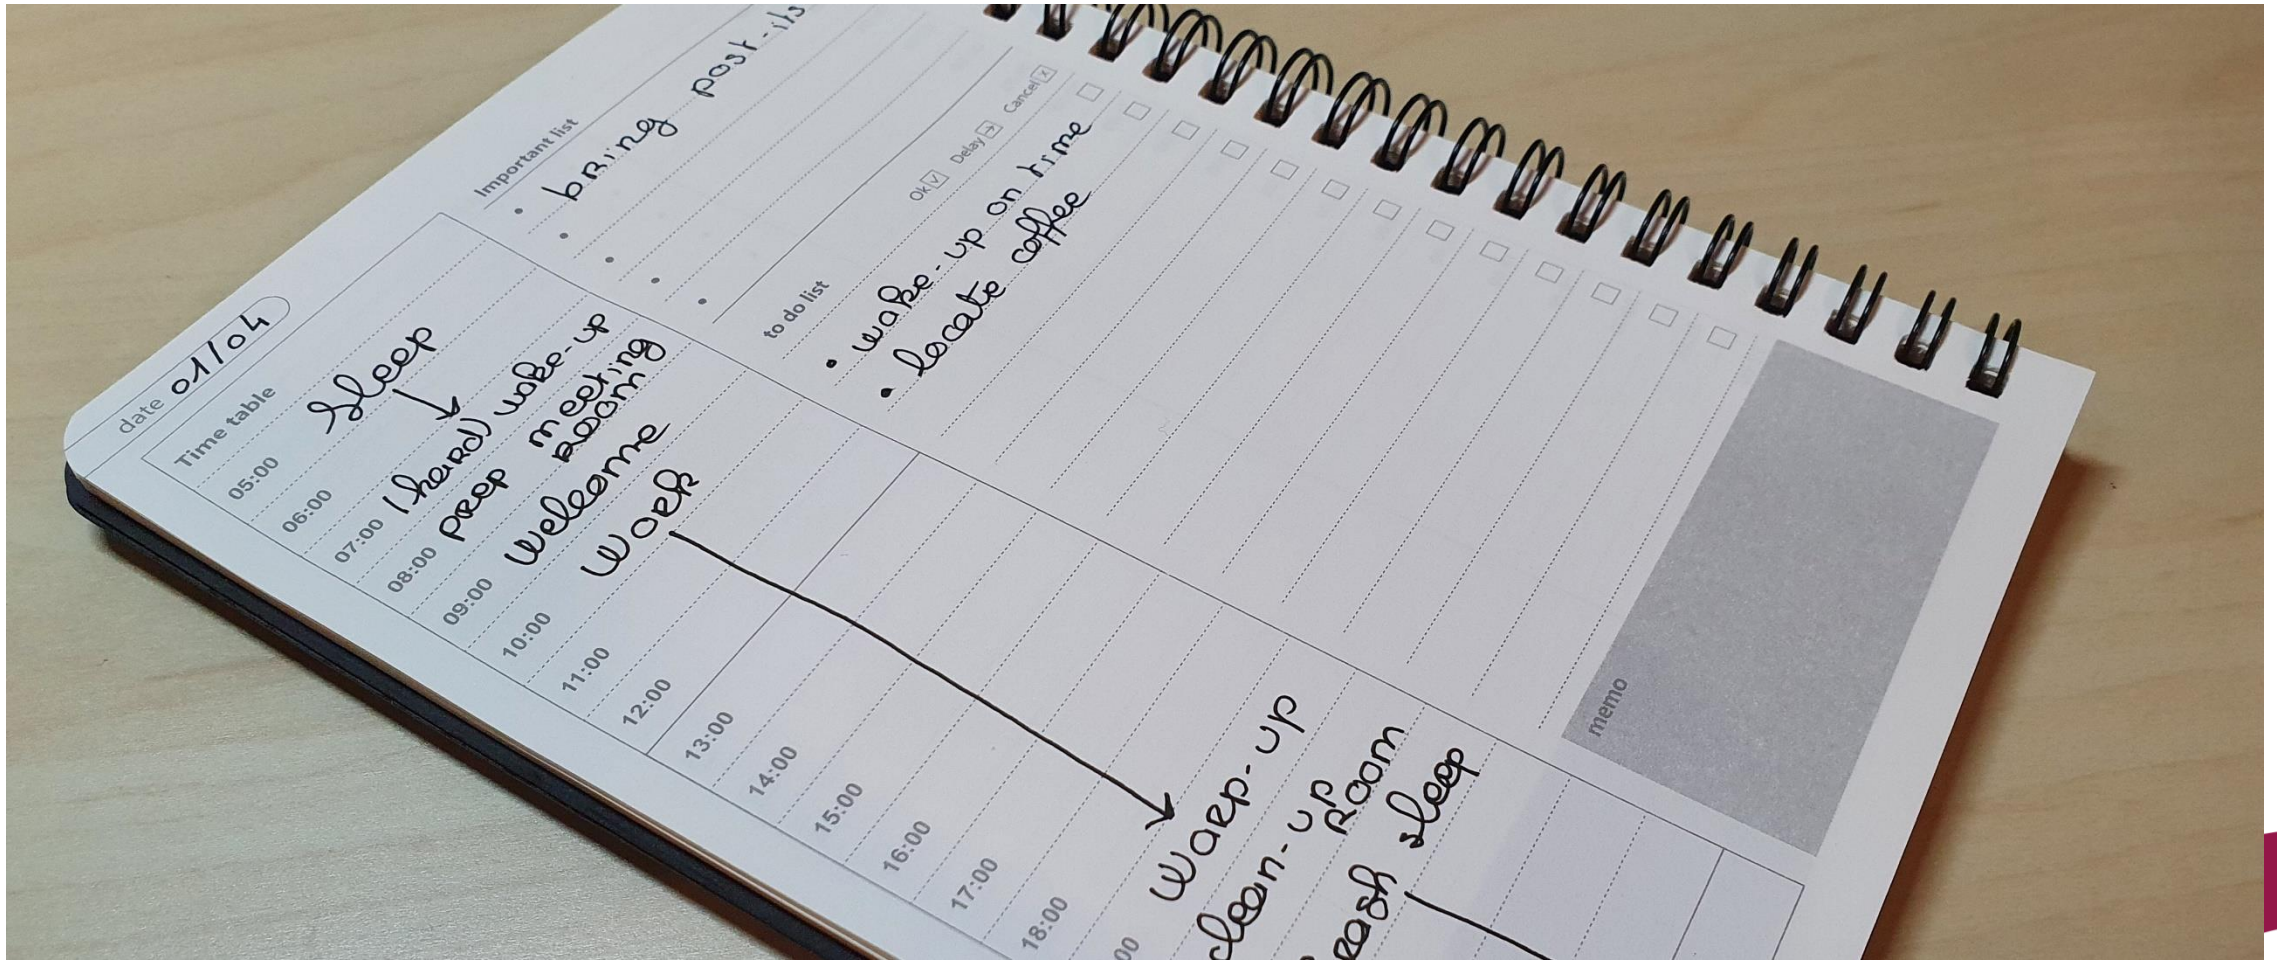 date 01/04
Time table
05:00 Sleep
06:00
07:00 (hard) wake-up
08:00 prep meeting
room
09:00 welcome
10:00 work
11:00
12:00
13:00
14:00
15:00
16:00
17:00
18:00 warp-up
00 clean-up
room
rash sleep
Important list
• bring post-its
•
•
•
•
to do list
Ok Delay Cancel
• wake-up on time
• locate coffee
memo